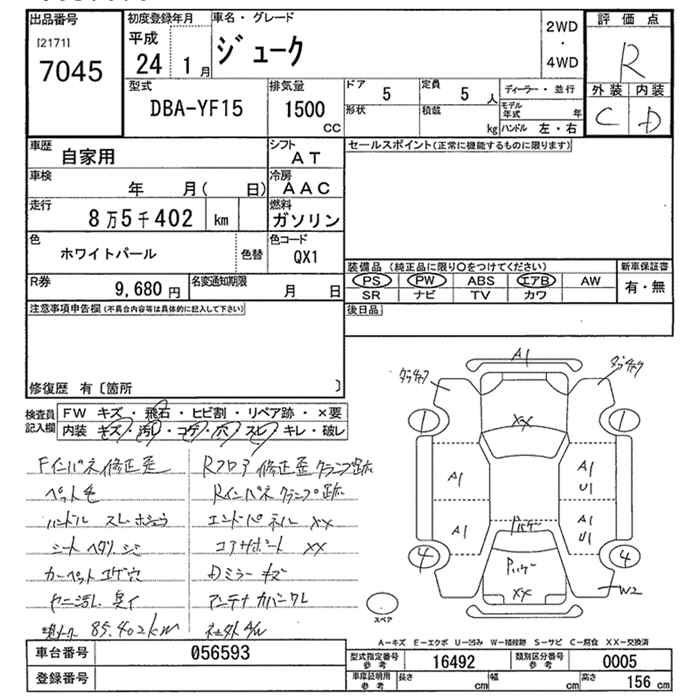 出品番号 初度登録年月 車名・グレード 2WD・4WD 評価点
[2171] 平成 ジューク R
7045 24 1月 外装 内装
型式 排気量 ドア 5 定員 5人 ディーラー・並行 C D
DBA-YF15 1500cc 形状 積載 kg モデル年式 年
ハンドル 左・右
車歴 自家用 シフト AT セールスポイント(正常に機能するものに限ります)
車検 年 月( 日) 冷房 AAC
走行 8万5千402 km 燃料 ガソリン
色 ホワイトパール 色替 色コード QX1
装備品 (純正品に限り○をつけてください) 新車保証書
R券 9,680円 名変通知期限 月 日 PS PW ABS エアB AW 有・無
SR ナビ TV カワ
注意事項申告欄(不具合内容等は具体的に記入して下さい) 後日品
修復歴 有〔箇所 〕
検査員記入欄 FW キズ・飛石・ヒビ割・リペア跡・×要
内装 キズ・汚れ・コゲ・穴・スレ・キレ・破レ
Fインパネ修正歪 Rフロア修正歪クランプ跡
ペット毛 Rインパネクランプ跡
ハンドル スレ エンドパネル XX
シート ヘタリ コアサポート XX
カーペット コゲ穴 Dミラーキズ
ヤニ汚レ 臭イ アンテナカバー
85.402km 社外A/W
A1
XX
1 1
A1 A1
U1
A1 A1
U1
4 4
XX
W2
スペア
A－キズ E－エクボ U－凹み W－補修跡 S－サビ C－腐食 XX－交換済
車台番号 056593 型式指定番号 参考 16492 類別区分番号 参考 0005
登録番号 車庫証明用 参考 長さ cm 幅 cm 高さ 156 cm